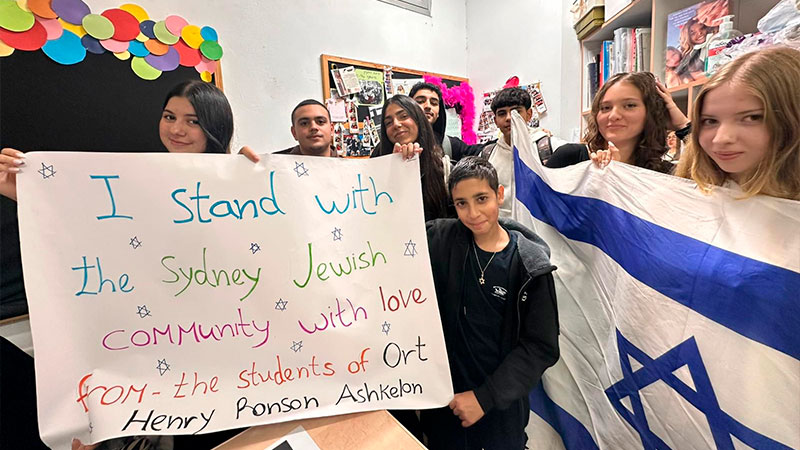 I stand with
the Sydney Jewish
community with love
from - the students of Ort
Henry Ronson Ashkelon